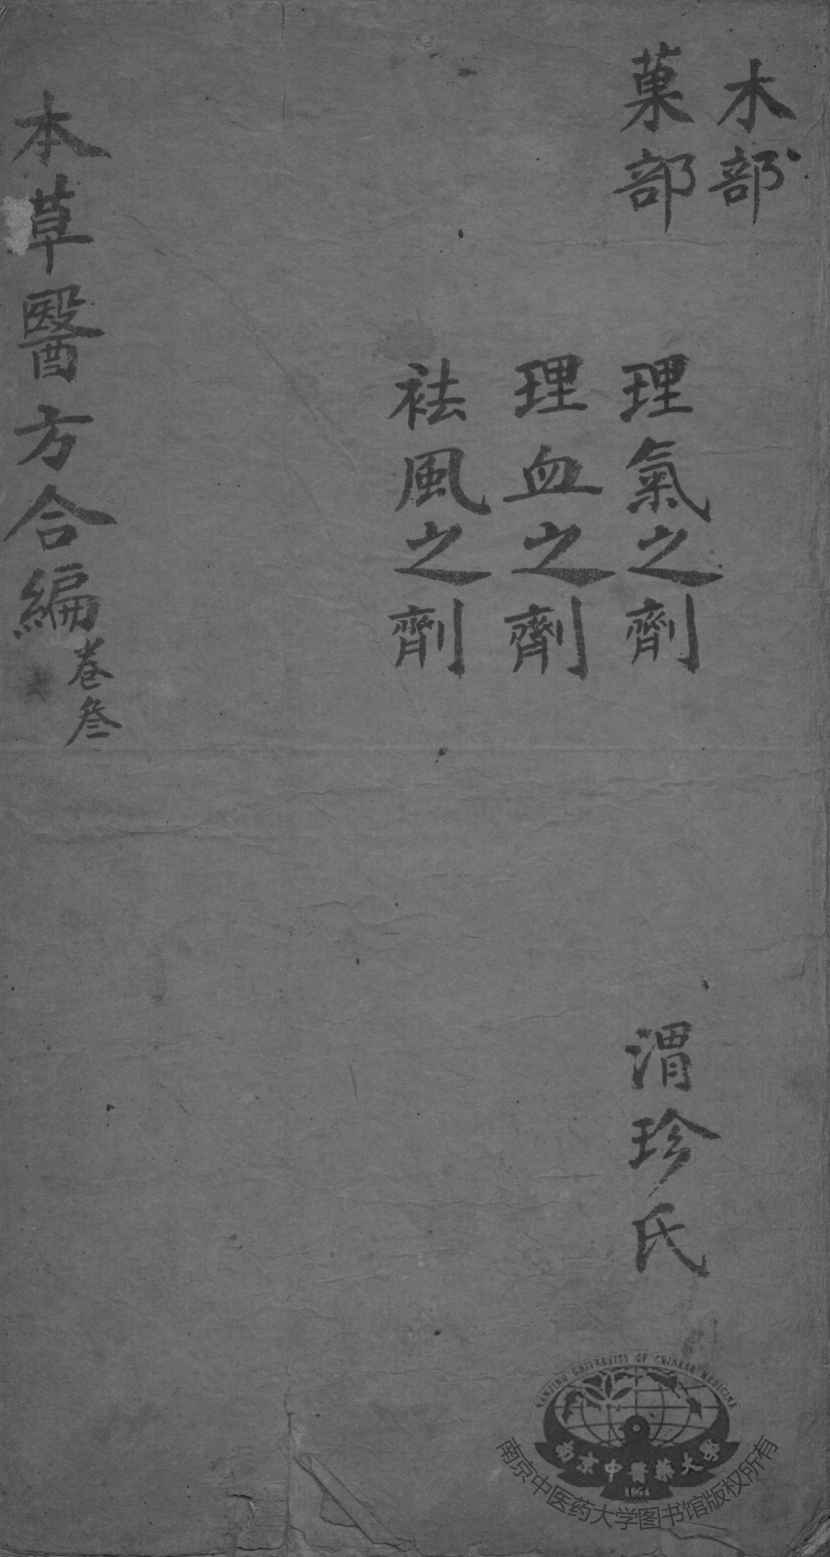 木部
菓部
理氣之劑
理血之劑
袪風之劑
渭珍氏
本草醫方合編
卷叄
NANJING UNIVERSITY OF CHINESE MEDICINE
南京中醫藥大學
1954
南京中医药大学图书馆版权所有